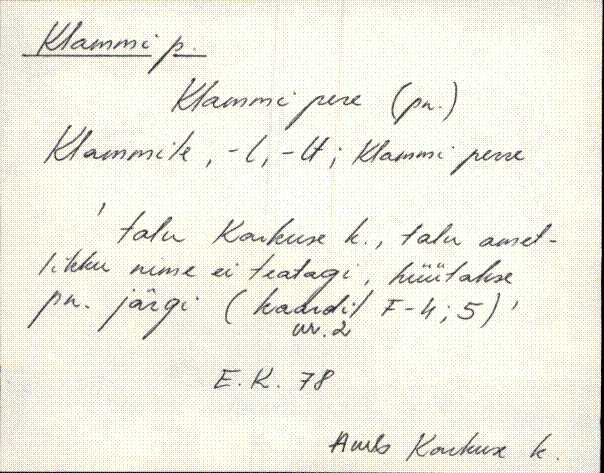 Klammi p.
Klammi pere (pn.)
Klammile, -l, -lt; Klammi perre
' talu Koikuse k., talu amet-
likku nime ei teatagi, hüütakse
pn. järgi (kaardil F-4; 5) '
nr. 2
E. K. 78
Koikuse k.